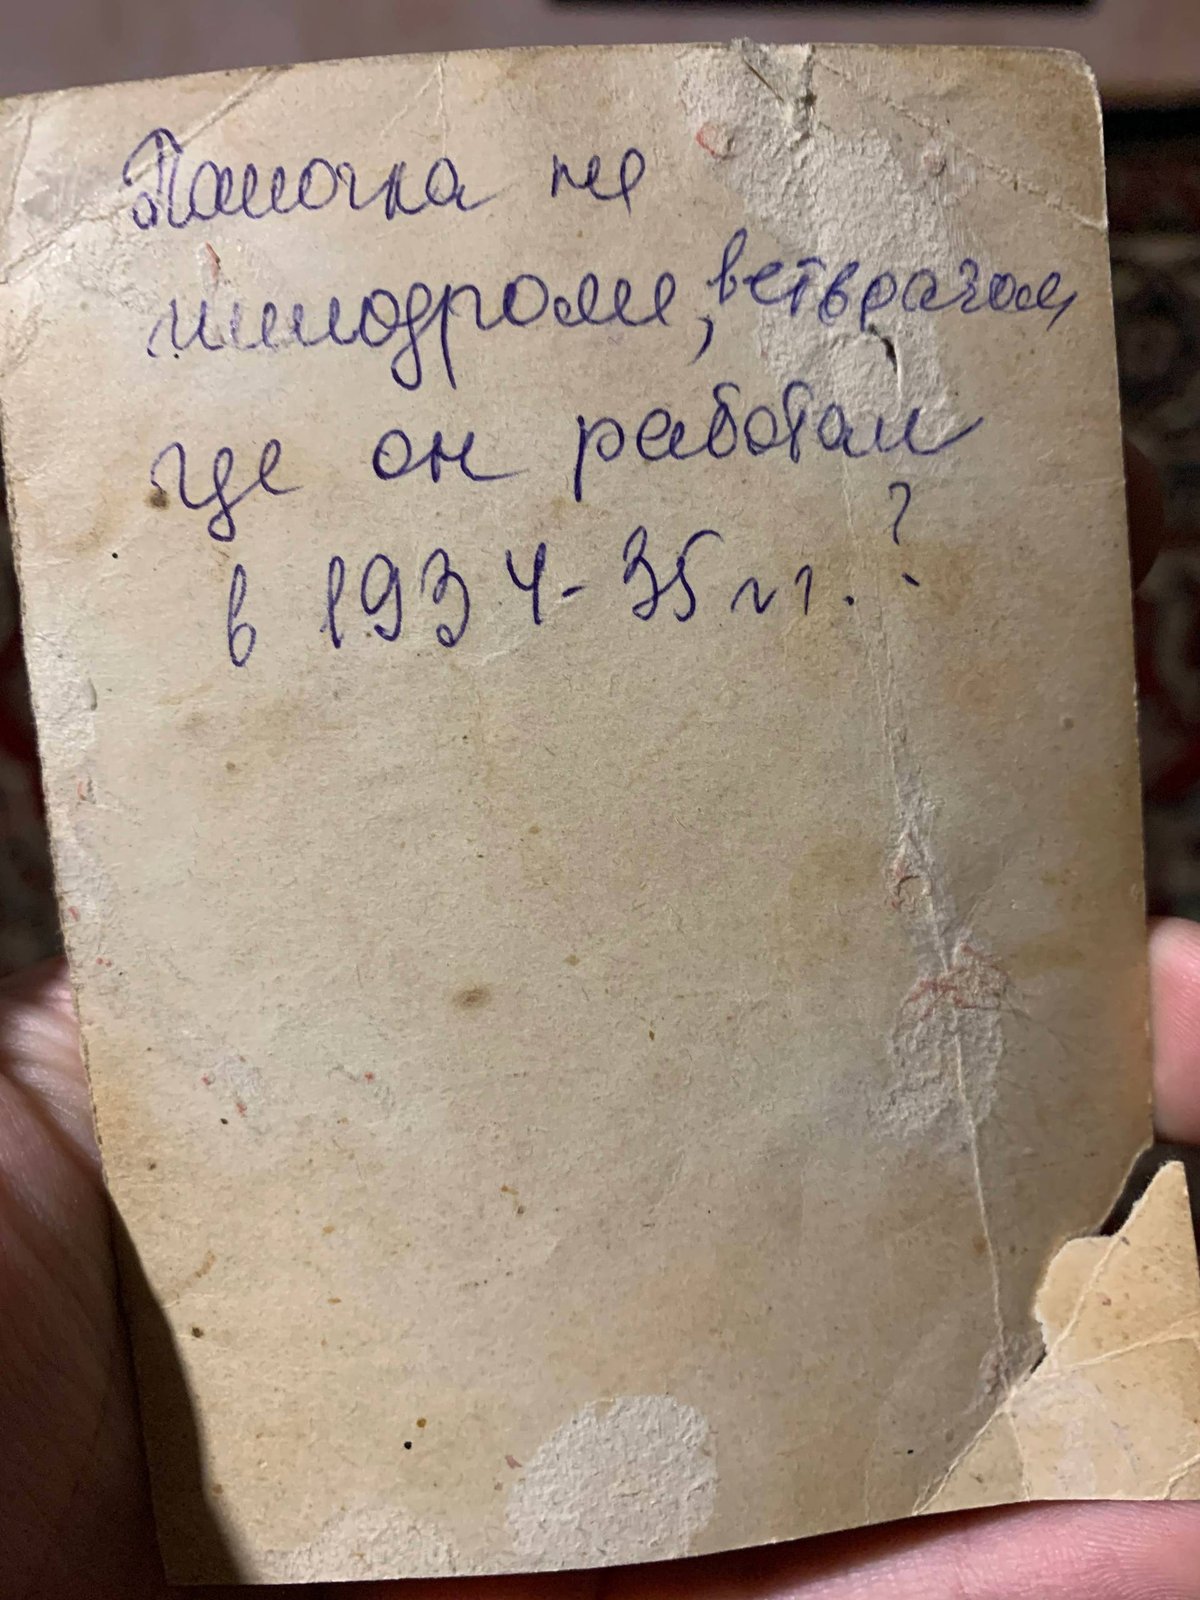 Папочка на
ипподроме, ветврачом,
где он работал
в 1934-35 гг. ?